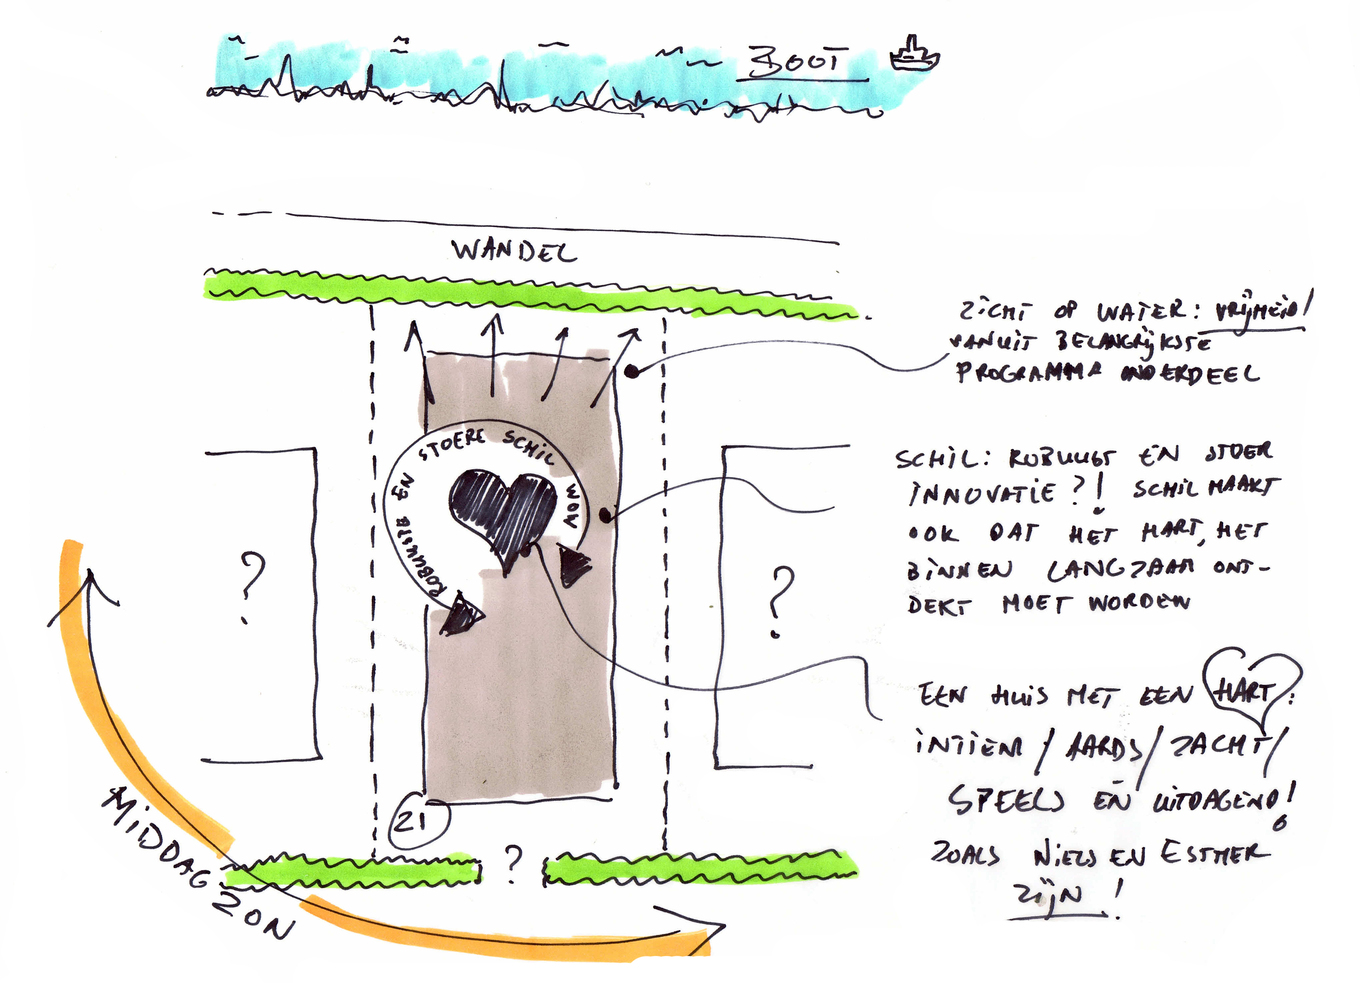 BOOT
WANDEL
ZICHT OP WATER: VRIJHEID!
VANUIT BELANGRIJKSTE
PROGRAMMA ONDERDEEL
ROBUUSTE EN STOERE SCHIL WOW
SCHIL: ROBUUST EN STOER
INNOVATIE?! SCHIL MAAKT
OOK DAT HET HART, HET
BINNEN LANGZAAM ONT-
DEKT MOET WORDEN
?
?
EEN HUIS MET EEN HART:
INTIEM / AARDS / ZACHT /
SPEELS EN UITDAGEND!
ZOALS NIELS EN ESTHER
ZIJN!
21
?
MIDDAG
ZON